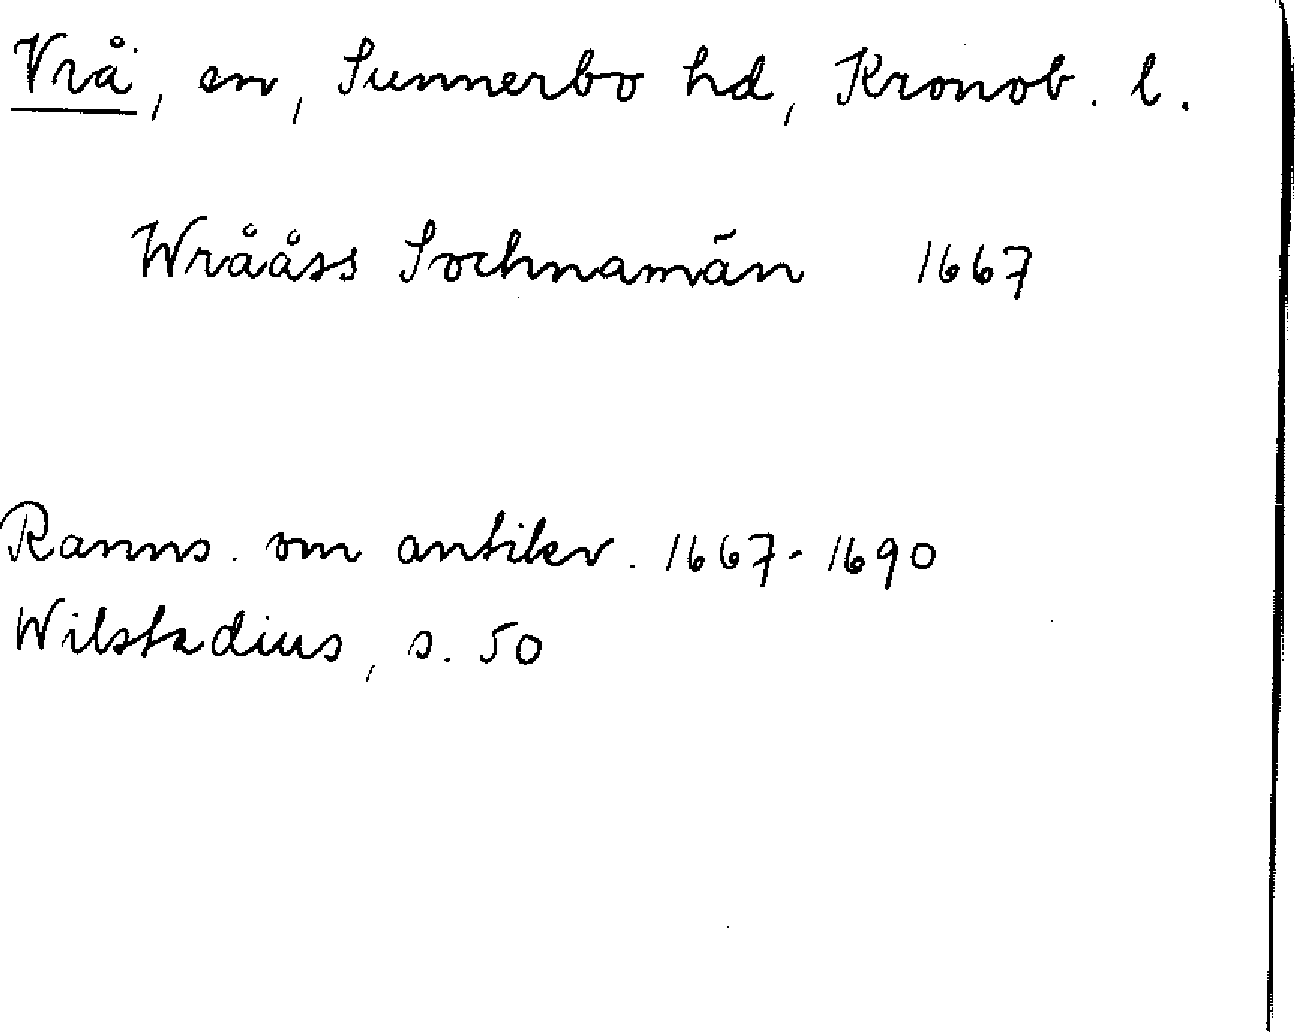 Vrå, sn, Sunnerbo hd, Kronob. l.
Wrååss Sochnamän 1667
Ranns. om antikv. 1667-1690
Wilstadius, s. 50